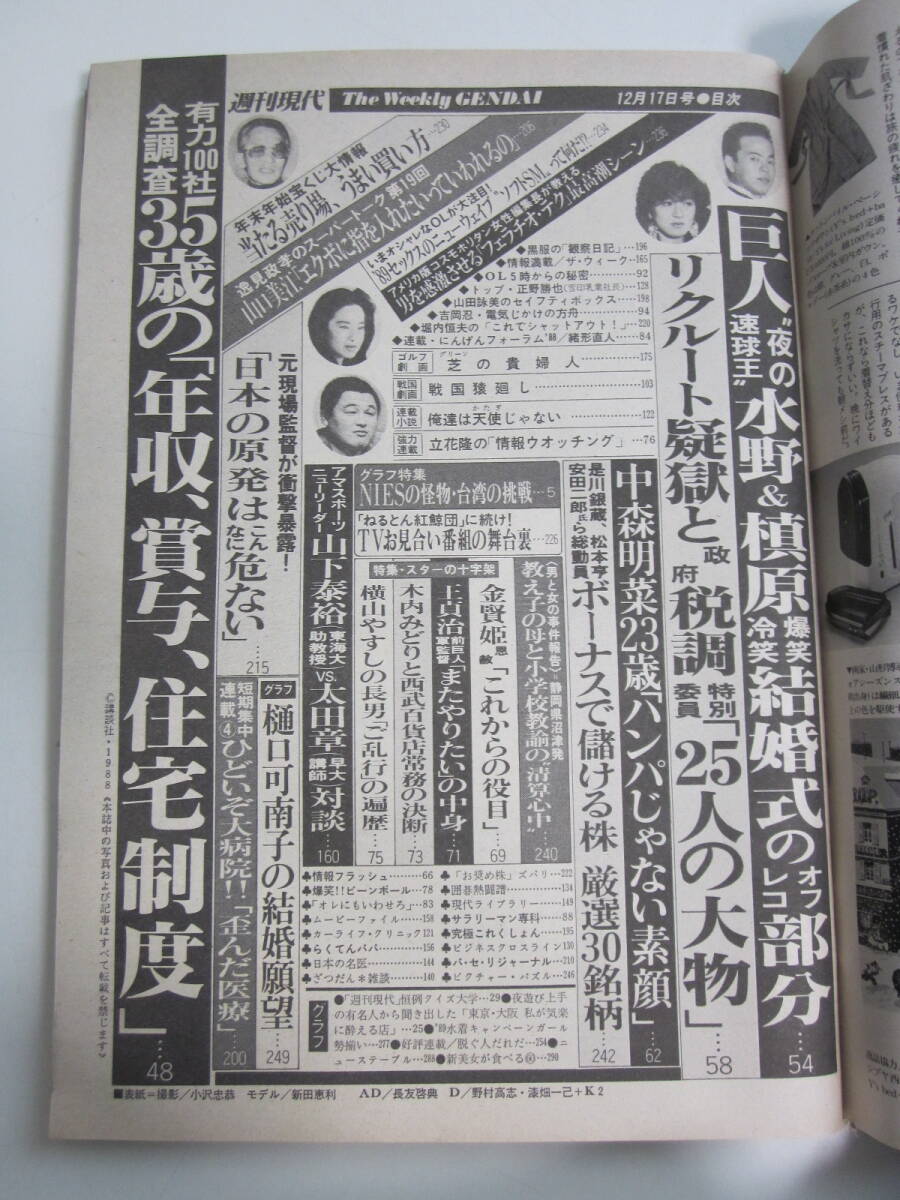 週刊現代
The Weekly GENDAI
12月17日号●目次
巨人"夜の速球王"水野&槙原爆笑冷笑結婚式のオフレコ部分…54
リクルート疑獄と政府税調特別委員「25人の大物」…58
中森明菜23歳「ハンパじゃない素顔」…62
是川銀蔵、松本亨、安田二郎氏ら総動員
ボーナスで儲ける株 厳選30銘柄…242
年末年始宝くじ大情報
当たる売り場、うまい買い方…230
逸見政孝のスーパートーク第19回
山口美江「エクボに指を入れたいっていわれるの」…206
いまオシャレなOLが大注目!
'89セックスのニューウェイブ"ソフトSM"って何だ!?…234
アメリカ版コスモポリタン女性編集長が教える
男を感激させる「フェラチオ・テク」最高潮シーン…236
◆黒服の「観察日記」…196
◆情報満載/ザ・ウィーク…165
◆OL5時からの秘密…92
◆トップ・正野勝也(雪印乳業社長)…128
◆山田詠美のセイフティボックス…198
◆吉岡忍・電気じかけの方舟…94
◆堀内恒夫の「これでシャットアウト!」…220
◆連載・にんげんフォーラム'88/緒形直人…84
ゴルフ劇画 芝の貴婦人…175
グリーン
戦国劇画 戦国猿廻し…103
連載小説 俺達は天使じゃない…122
かたす
強力連載 立花隆の「情報ウオッチング」…76
グラフ特集
NIESの怪物・台湾の挑戦…5
「ねるとん紅鯨団」に続け!
TVお見合い番組の舞台裏…226
〈男と女の事件報告〉=静岡県沼津発
教え子の母と小学校教諭の"清算心中"…240
特集・スターの十字架
金賢姫「これからの役目」…69
王貞治前巨人軍監督「またやりたい」の中身…71
木内みどりと西武百貨店常務の決断…73
横山やすしの長男「ご乱行」の遍歴…75
アマスポーツニューリーダー
山下泰裕(東海大助教授)VS.太田章(早大講師)対談…160
元現場監督が衝撃暴露!
「日本の原発はこんなに危ない」…215
グラフ 樋口可南子の結婚願望…249
短期集中連載④ ひどいぞ大病院!!「歪んだ医療」…200
有力100社全調査
35歳の「年収、賞与、住宅制度」…48
♣情報フラッシュ…66
♣爆笑!!ビーンボール…78
♣「オレにもいわせろ」…83
♣ムービーファイル…158
♣カーライフ・クリニック…121
♣らくてんパパ…156
♣日本の名医…144
♣ざつだん*雑談…140
♣「お奨め株」ズバリ…222
♣囲碁熱闘譜…134
♣現代ライブラリー…149
♣サラリーマン専科…88
♣究極これくしょん…195
♣ビジネスクロスライン…130
♣パ・セ・リジャーナル…210
♣ピクチャー・パズル…246
グラフ
●「週刊現代」恒例クイズ大学…29●夜遊び上手
の有名人から聞き出した「東京・大阪 私が気楽
に酔える店」…25●'89水着キャンペーンガール
勢揃い…277●好評連載/脱ぐ人だれだ…254●ニ
ューステーブル…288●新美女が食べる…290
©講談社・1988《本誌中の写真および記事はすべて転載を禁じます》
■表紙=撮影/小沢忠恭 モデル/新田恵利 AD/長友啓典 D/野村高志・漆畑一己+K2